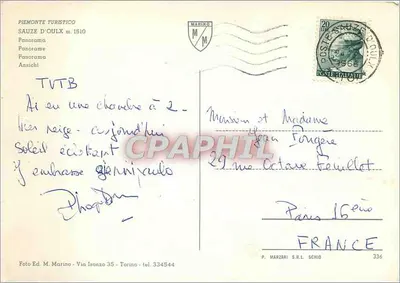 PIEMONTE TURISTICO
SAUZE D'OULX m. 1510
Panorama
Panorama
Panorama
Ansicht
MARINO
M M
20
POSTE ITALIANE
SAUZE D'OULX
1968
TVTB
Ai eu une chambre à 2 -
Hier neige - aujourd'hui
soleil éclatant
J'embrasse
CPRAPHIL
Monsieur et Madame
Jean
29 rue Octave Feuillet
Paris 16ème
FRANCE
Foto Ed. M. Marino - Via Isonzo 35 - Torino - tel. 334544
P. MARZARI S.R.L. SCHIO
336